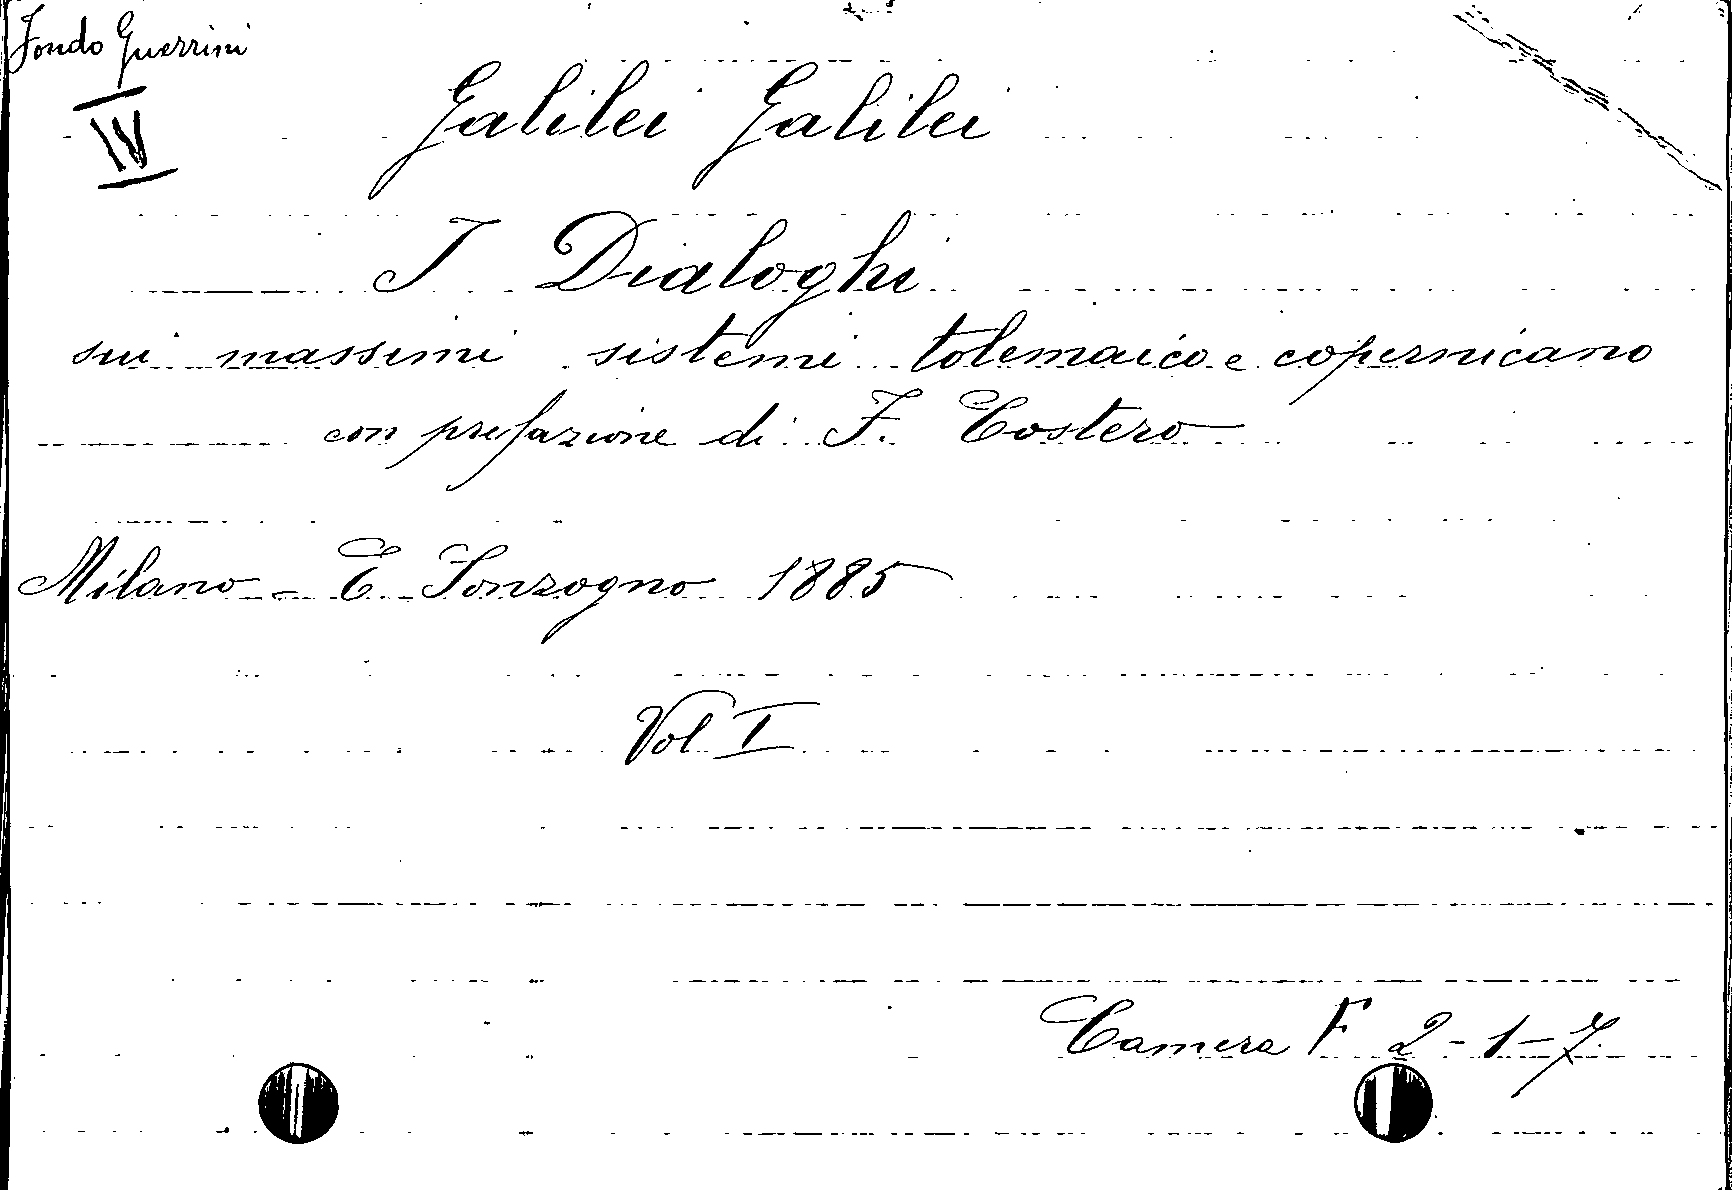 Fondo Guerrini
IV
Galilei Galilei
I Dialoghi
sui massimi sistemi tolemaico e copernicano
con prefazione di F. Costero
Milano - E Sonzogno 1885
Vol I
Camera F 2-1-7